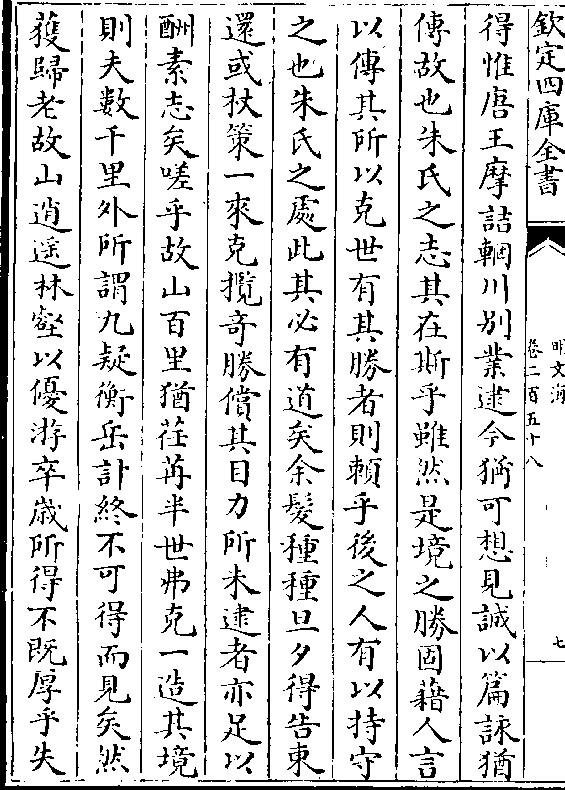 欽定四庫全書
明文海
卷二百五十八
七
得惟唐王摩詰輞川别業逮今猶可想見誠以篇詠猶
傳故也朱氏之志其在斯乎雖然是境之勝固藉人言
以傳其所以克世有其勝者則頼乎後之人有以持守
之也朱氏之處此其必有道矣余髮種種旦夕得告東
還或杖策一來克攬奇勝償其目力所未逮者亦足以
酬素志矣嗟乎故山百里猶荏苒半世弗克一造其境
則夫數千里外所謂九疑衡岳計終不可得而見矣然
獲歸老故山逍遥林壑以優游卒歳所得不既厚乎失